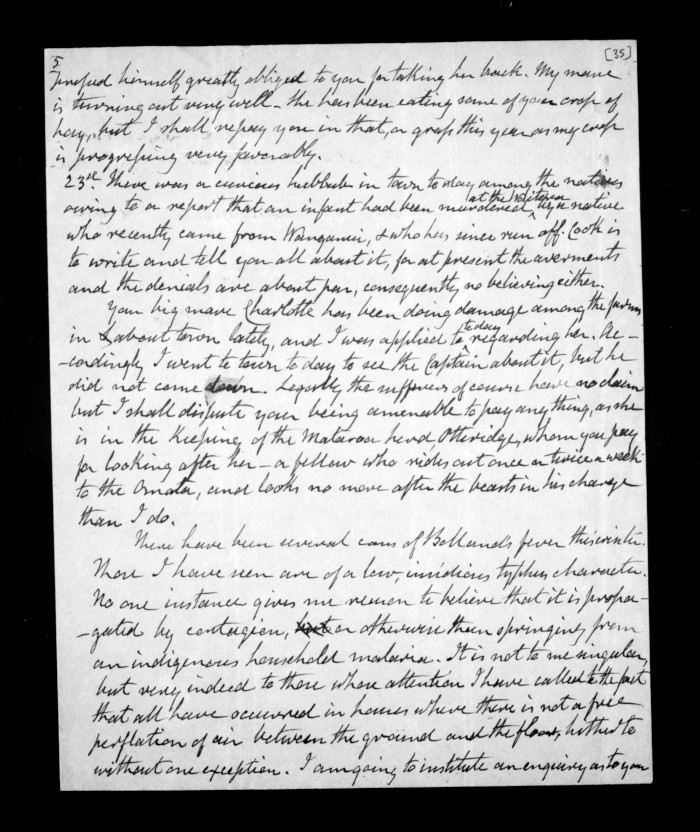 5
[35]
profess himself greatly obliged to you for taking her back. My mare
is turning out very well - She has been eating some of your crop of
hay, but I shall repay you in that, or grass this year as my crop
is progressing very favorably.
23rd. There was a curious hubbub in town to day among the natives
owing to a report that an infant had been murdered at the by a native
who recently came from Wanganui, & who has since run off. Cook is
to write and tell you all about it, for at present the averments
and the denials are about par, consequently no believing either.
Your big mare Charlotte has been doing damage among the farms
in & about town lately, and I was applied to to day regarding her. Ac-
-cordingly I went to town to day to see the Captain about it, but he
did not come down. Legally, the sufferers of course have no claim
but I shall dispute your being amenable to pay anything, as she
is in the Keeping of the Mataroa herd Otteridge, whom you pay
for looking after her - a fellow who rides out once or twice a week
to the Omata, and looks no more after the beasts in his charge
than I do.
There have been several cases of Bolland's fever this winter.
Those I have seen are of a low, insidious typhus character.
No one instance gives me reason to believe that it is propa-
-gated by contagion, or otherwise than springing from
an indigenous household malaria. It is not to me singular,
but very indeed to those whose attention I have called to the fact
that all have occurred in houses where there is not a free
perflation of air between the ground and the floor, hitherto
without one exception. I am going to institute an enquiry as to your